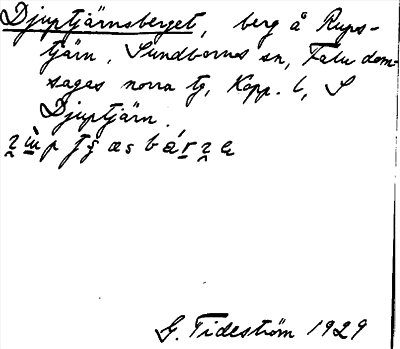 Djuptjärnsberget, berg å Rups-
tjärn, Sundbornes sn, Falu dom-
sagas norra tg, Kopp. l, S
Djuptjärn.
G. Tideström 1929